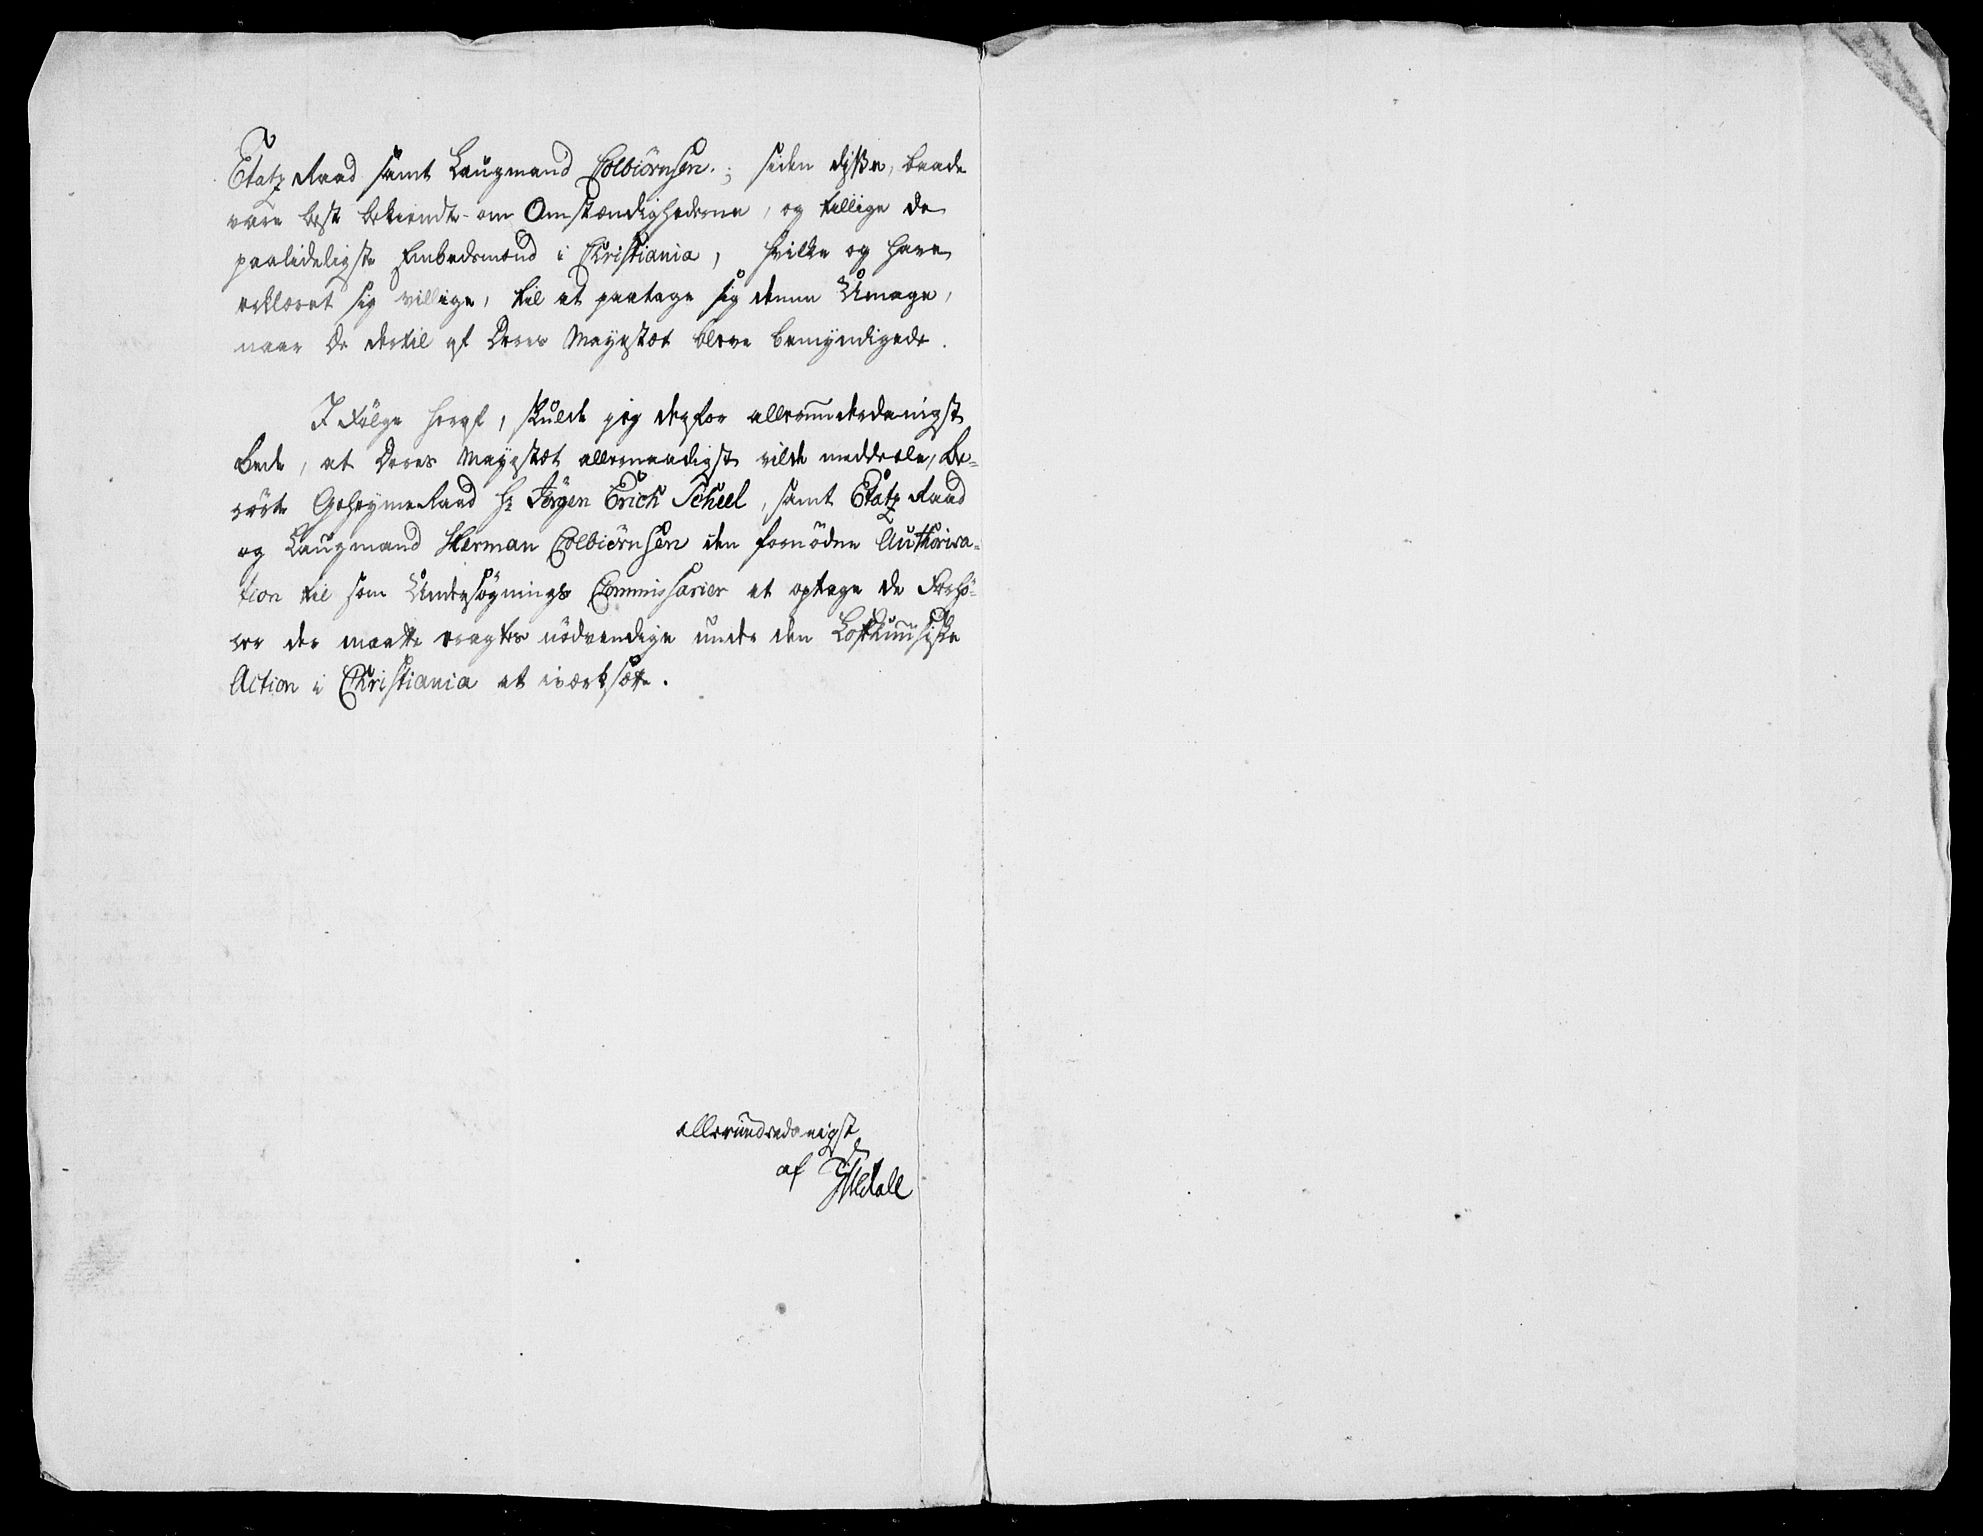 Etatz Raad samt Laugmand Colbiörnsen; siden disse, baade
vare best bekiendte om Omstændighederne, og tillige de
paalideligste Embedsmænd i Christiania, hvilke og have
erklæret sig villige, til at paatage sig denne Umage,
naar de dertil af Deres Mayestæt bleve bemyndigede.
I Følge heraf, skulde jeg derfor allerunderdanigst
bede, at Deres Mayestæt allernaadigst vilde meddeele, be-
rörte GeheymeRaad Hr Jörgen Erich Scheel, samt Etatz Raad
og Laugmand Herman Colbiörnsen den fornödne Authorisa-
tion til som Undersögnings Commissarier at optage de Forhö-
rer der maatte eragtes nödvendige under den Lofthuusiske
Action i Christiania at iværksætte.
allerunderdanigst
af